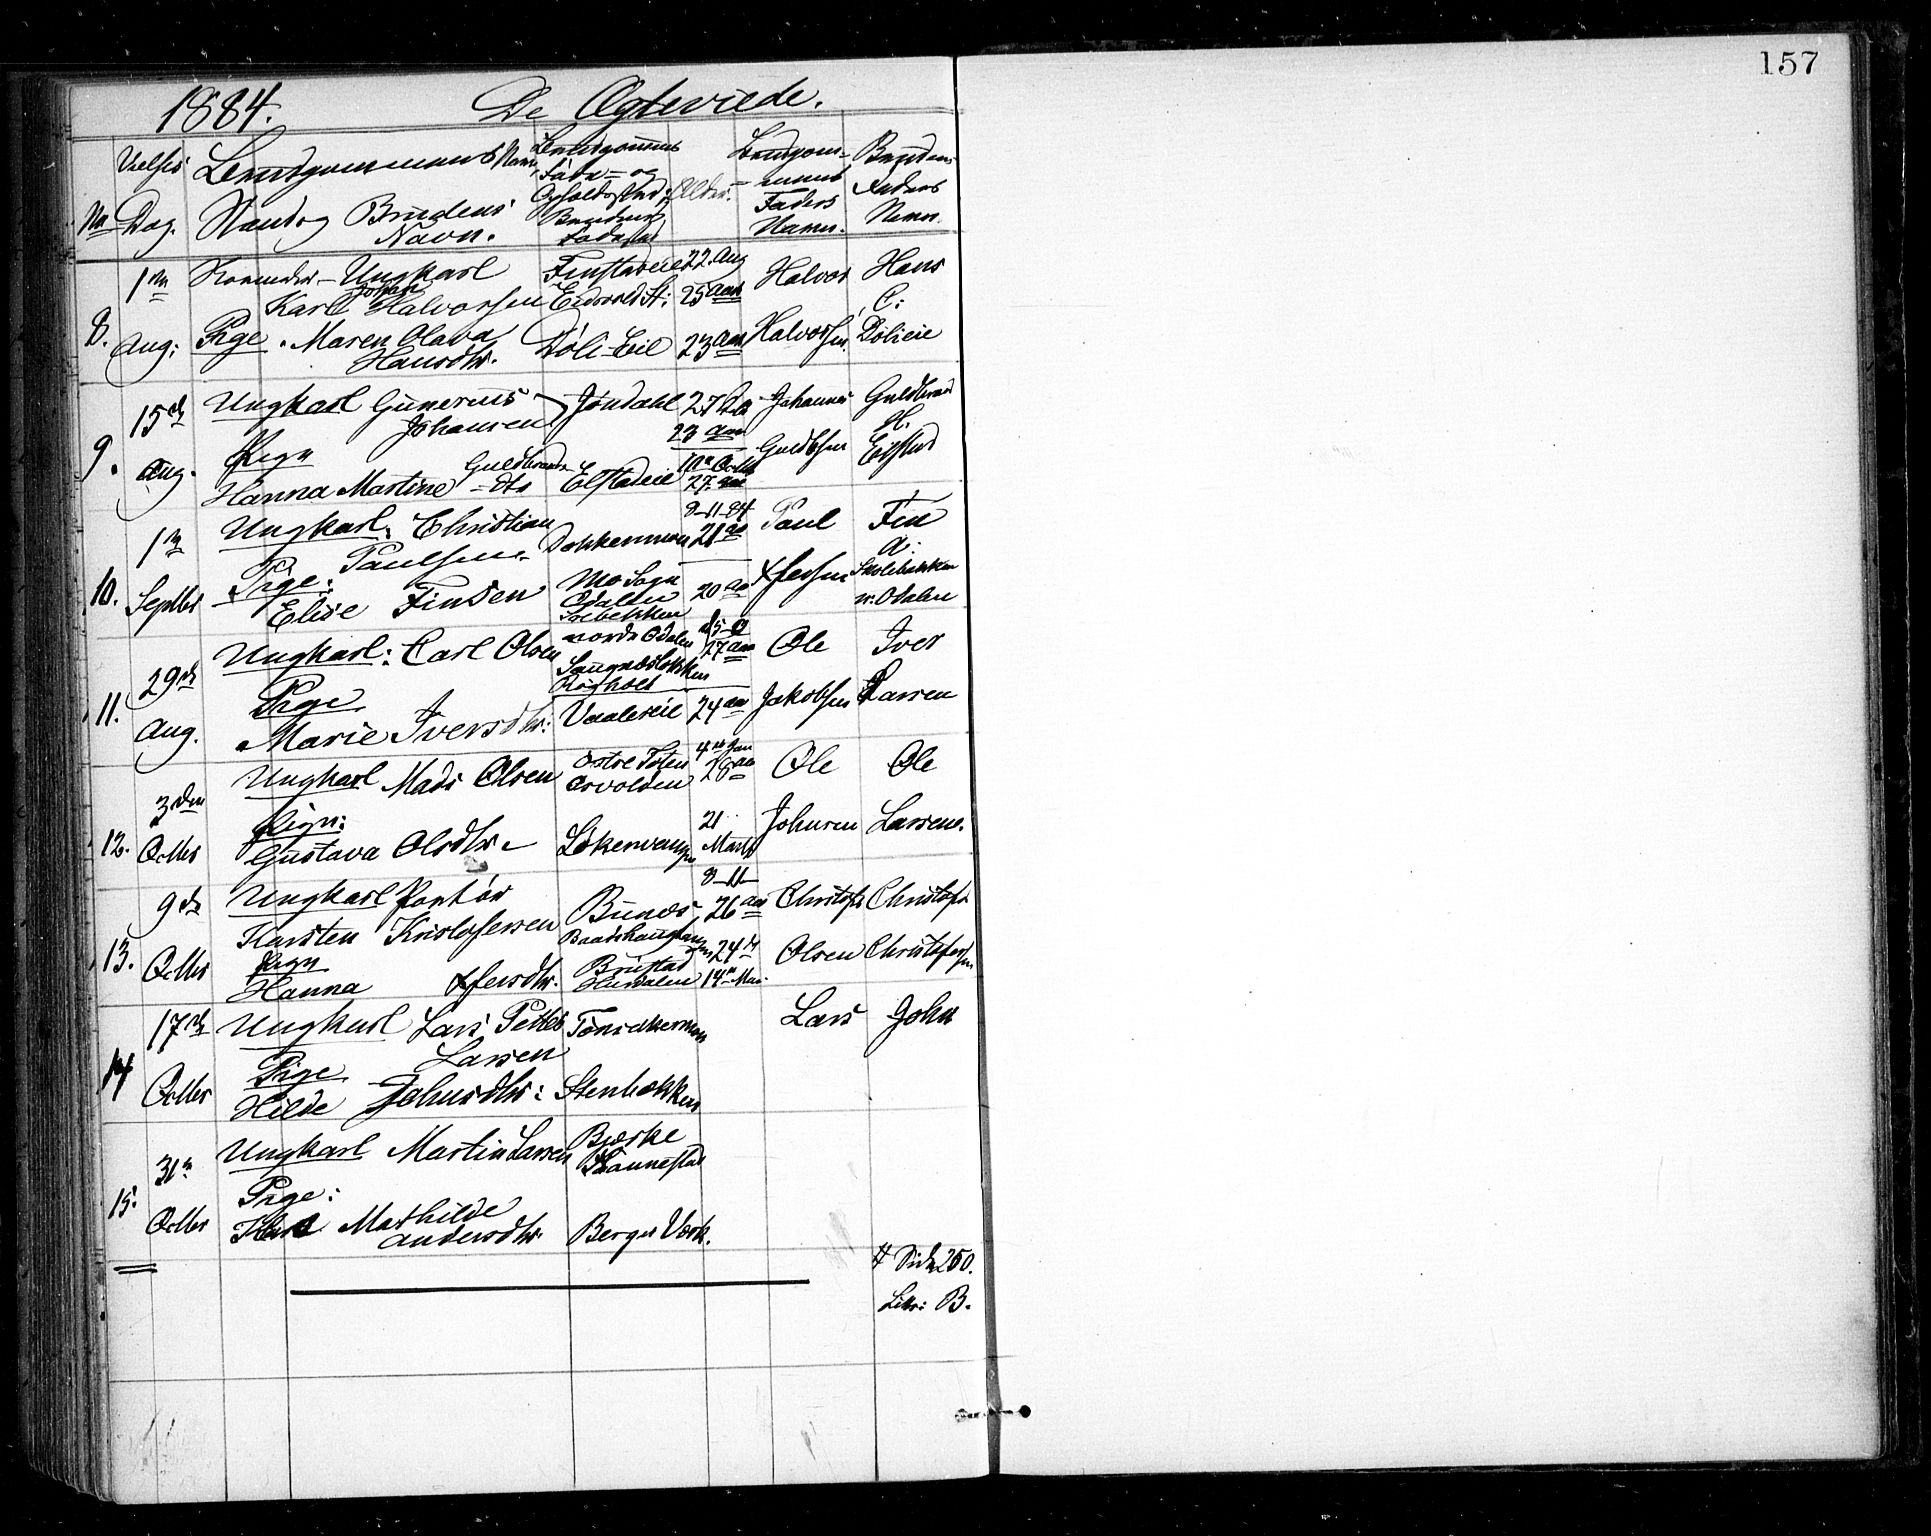 157
1884. De Ægteviede.
No
Vielses Dag.
Brudgommens Navn,
Stand og Brudens
Navn.
Brudgommens
Føde- og
Opholdssted;
Brudens
Fødested
Alder.
Brudgom-
mens
Faders
Namn.
Brudens
Faders
Namn.
8.
1ste
Aug:
Ungkarl
Johan
Karl Halvorsen
Pige. Maren Olava
Hansdtr.
Finstadeie
Eidsvold St:
Døli-Eie
22. Aug
25 aar
23 aar
Halvor
Halvorsen
Hans
C:
Dølieie
9.
15de
Aug.
Ungkarl Gunerius
Johansen
Pigen
Hanna Martine Guldbrands
-dtr
Jøndahl
Elstadeie
23 aar
27 aar
Johannes
Guldbsen
Guldbrand
H.
Elstad
10.
1ste
Septbr
Ungkarl: Christian
Paulsen
Pige:
Elise Finsen
Dokkenmoen
Mo Sogn
Odalen
8-11-84
21 aar
20 aar
Paul
Xfersen
Fin
A:
n: Odalen
11.
29de
Aug.
Ungkarl: Carl Olsen
Pige
Marie Iversdtr:
nordr Odalen
Raaholt
Vaalereie
27 aar
24 aar
Ole
Jakobsen
Iver
Larsen
12.
3den
Octbr
Ungkarl Mads Olsen
Pigen:
Gustava Olsdtr.
Østre Toten
4de Jan
28 aar
21
Marts
Ole
Johnsen
Ole
Larsen.
13.
9de
Octbr
Ungkarl
Karsten Kristofersen
Pigen
Hanna Xfersdtr.
Bunæs
Hurdalen
8-11-
26 aar
24
14de Mai
Christofr
Olsen
Christofr
Christofersen
14
17de
Octbr
Ungkarl Lars Petter
Larsen
Pige
Hilde Johnsdtr:
Tønsakermoen
Stenbækken
Lars
John
15.
31te
Octbr
Ungkarl Martin Larsen
Pige:
Mathilde
Andersdtr.
Bjørke
Hannestad
Berger Værk.
# Side 250.
Litr: B.